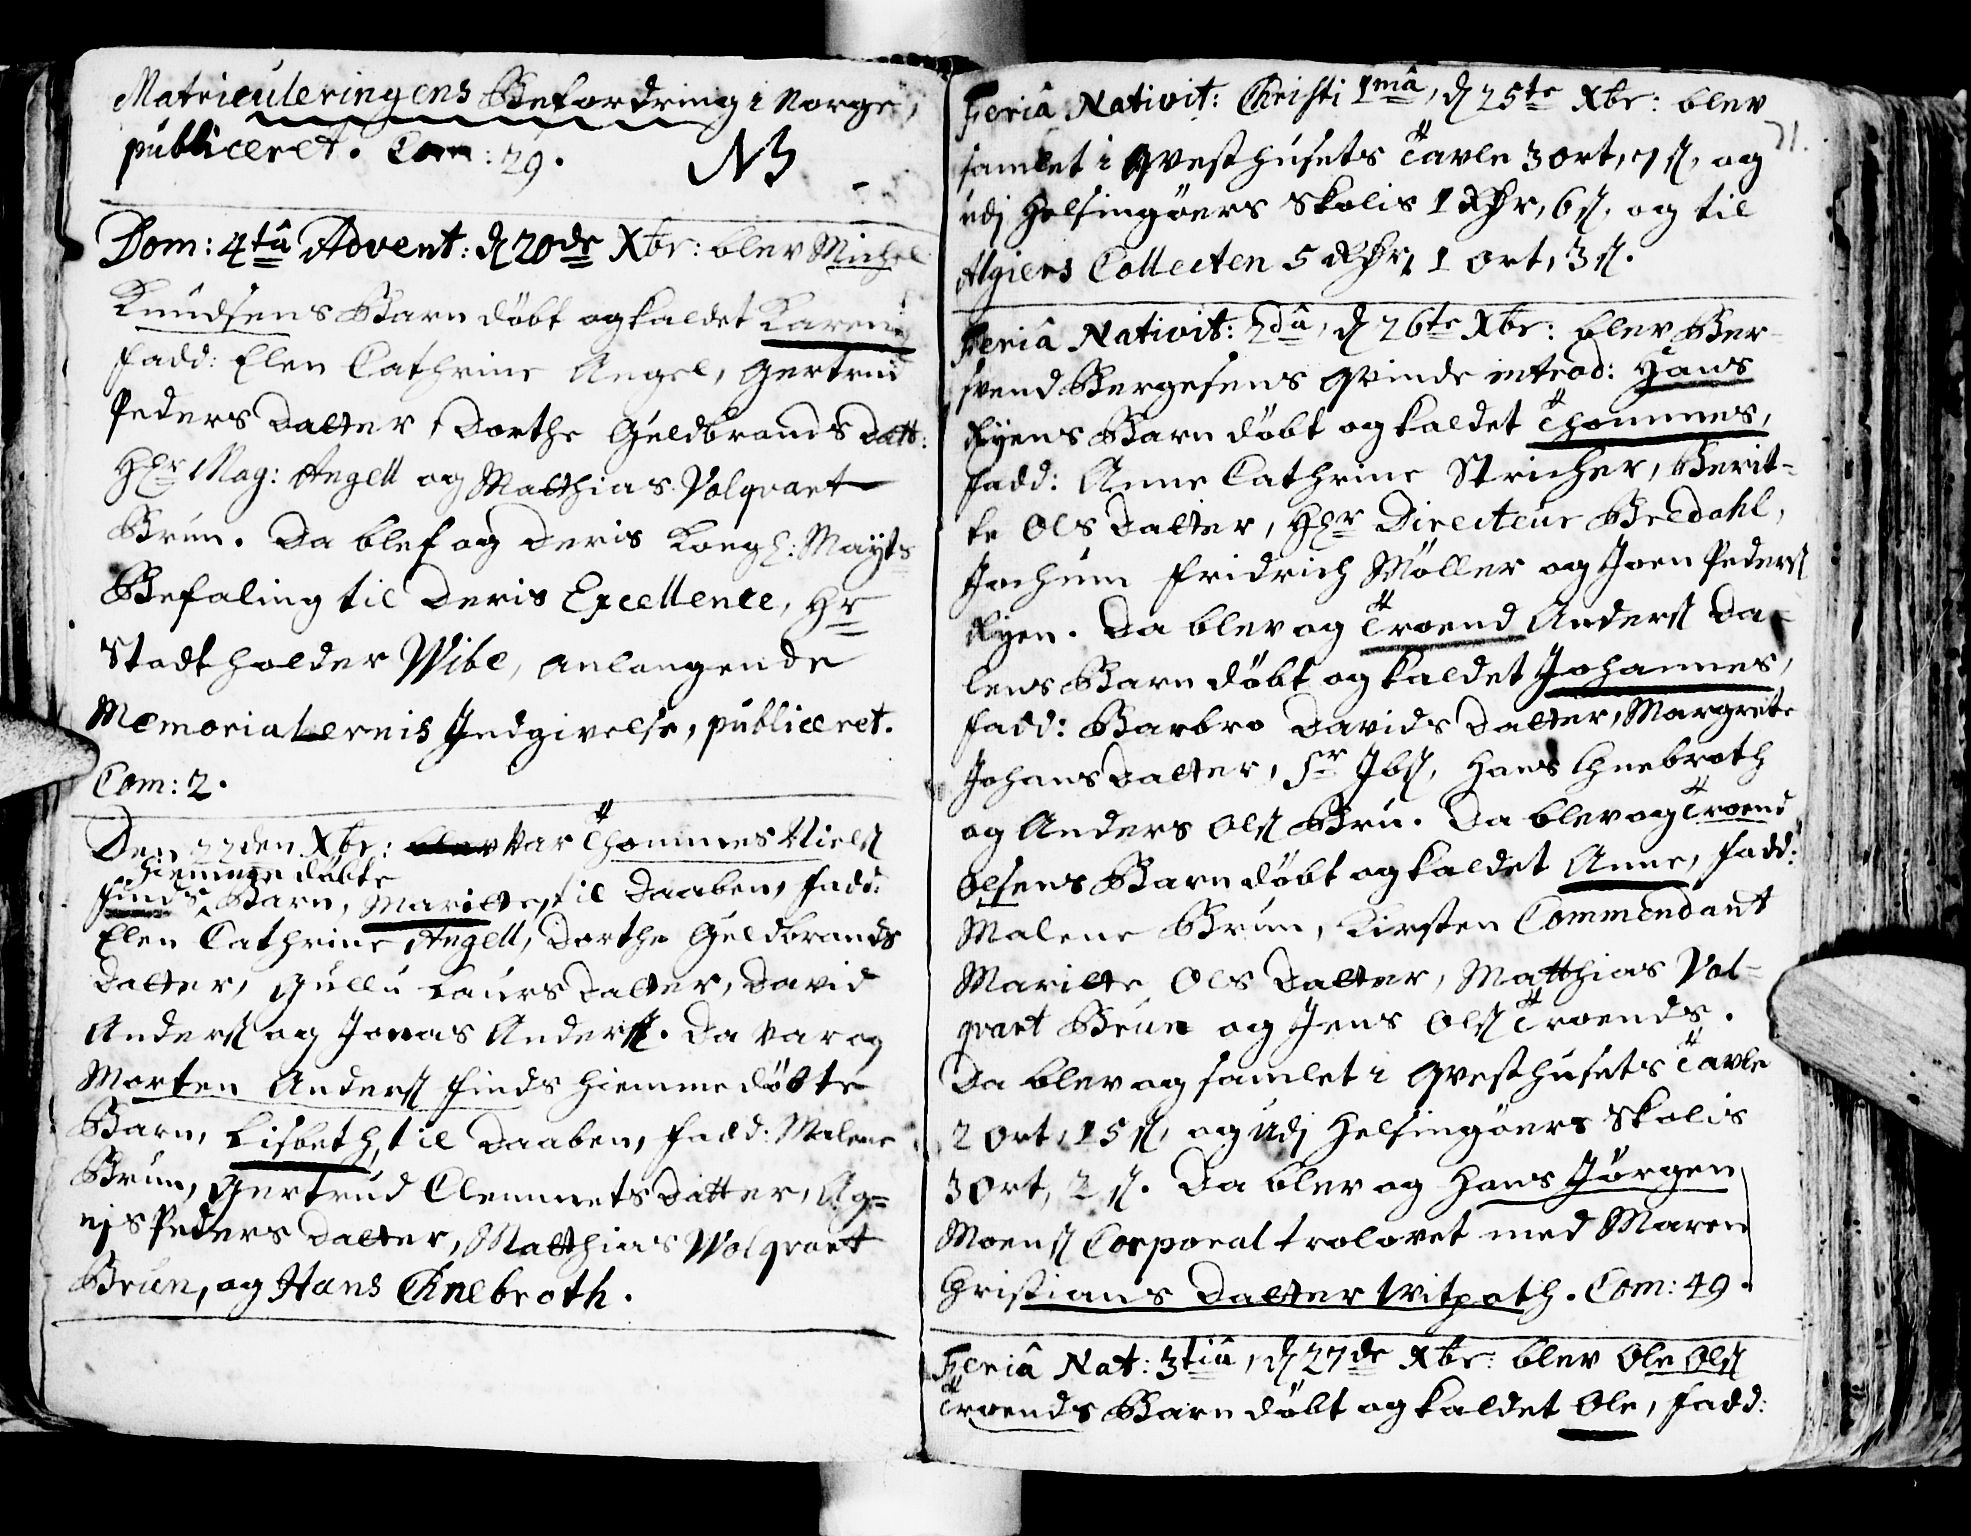 Matriculeringens Befordring i Norge,
publiceret. Com: 29. NB
Dom: 4tâ Advent: d 20de Xbr: blev Michel
Knudsens Barn døbt og kaldet Karen
fadd: Elen Cathrine Angel, Gertrud
Peders Datter, Dorthe Guldbrands Datt:
Hr Mag: Angell og Matthias Volqvart
Brun. Da blef og Deris Kongl: Mayts
Befaling til Deris Excellence, Hr
Stadtholder Wibe, anlangende
Memorialernis Indgivelse, publiceret.
Com: 2.
Den 22den Xbr: var Thommes Niels
hiemme døbte
Finds Barn, Maritte, til Daaben, fadd:
Elen Cathrine Angell, Dorthe Guldbrands
Datter, Gullu Laurs Datter, David
Anders og Jonas Anders. Da var og
Morten Anders Finds hiemmedøbte
Barn, Lisbeth, til Daaben, fadd: Malene
Brun, Gertrud Clemmets Datter, Ag=
nis Peders Datter, Matthias Wolqvart
Brun, og Hans Cknebroth.
71.
Feriâ Nativit: Christi 1mâ, d 25te Xbr: blev
samlet i Qvesthusets Tavle 3 ort, 7 s, og
udj Helsingøers Skolis 1 Rdr, 6 s, og til
Algiers Collecten 5 Rdr, 1 ort, 3 s.
Feriâ Nativit: 2dâ, d 26te Xbr: blev Ber-
svend Bergesens Qvinde introd: Hans
Ryens Barn døbt og kaldet Thommes,
fadd: Anne Cathrine Stricher, Berit-
te Ols Datter, Hr Directeur Bredahl,
Jochum Fridrich Møller og Joen Peders
Ryen. Da blev og Troend Anders Da-
lens Barn døbt og kaldet Johannes,
fadd: Barbro Davids Datter, Margrete
Johans Datter, Sr Ibs, Hans Cknebroth
og Anders Ols Bru. Da blev og Troend
Olsens Barn døbt og kaldet Anne, fadd:
Malene Brun, Kirsten Commendant
Maritte Ols Datter, Matthias Vol-
qvart Brun og Jens Ols Troends.
Da blev og samlet i Qvesthusets Tavle
2 ort, 15 s, og udj Helsingøers Skolis
3 ort, 2 s. Da blev og Hans Jørgen
Moens Corporal trolovet med Maren
Christians Datter Witpoth. Com: 49.
Feriâ Nat: 3tiâ, d 27de Xbr: blev Ole Ols
Troends Barn døbt og kaldet Ole, fadd: